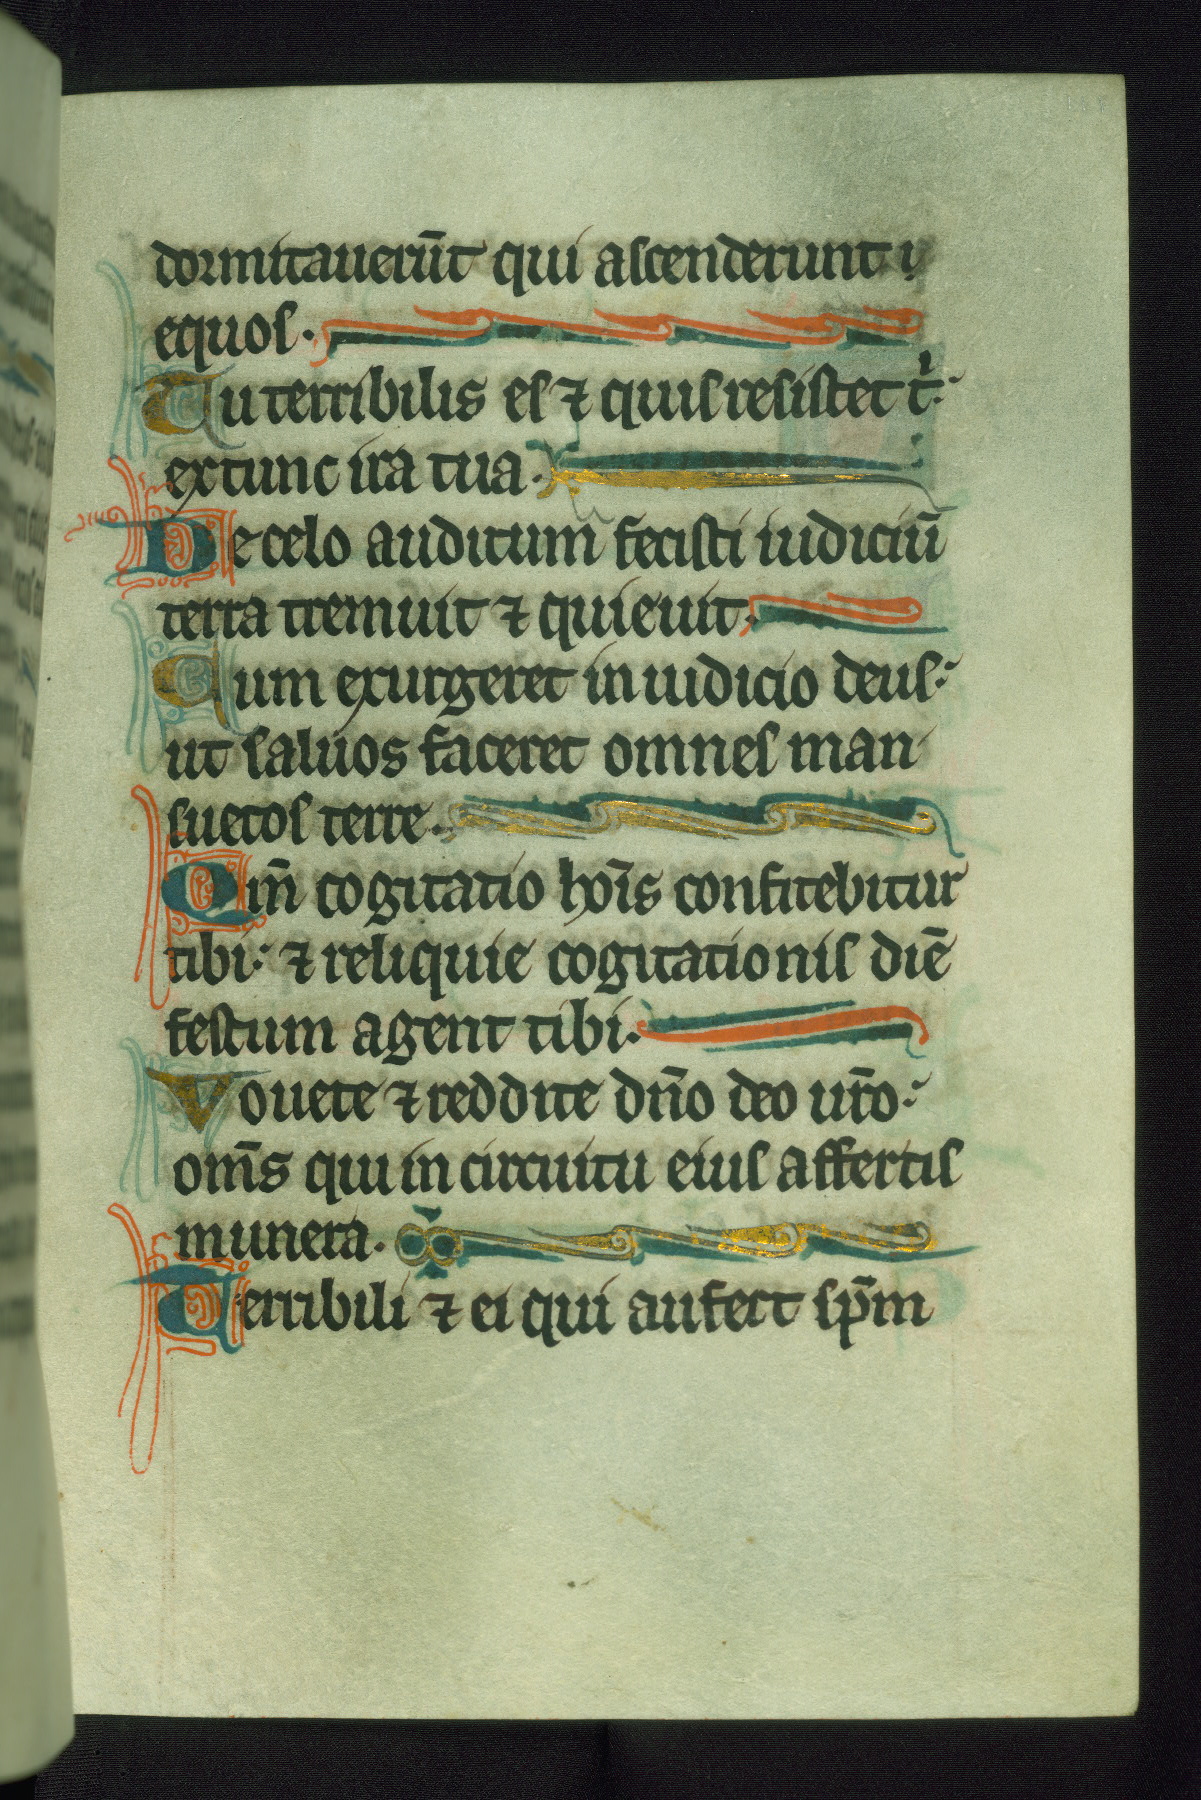 dormitauerūt qui ascenderunt
equos.
Tu terribilis es ⁊ quis resistet t̕:
extunc ira tua.
De celo auditum fecisti iudiciū
terra tremuit ⁊ quieuit.
Cum exurgeret in iudicio deus:
ut saluos faceret omnes man
suetos terre.
Qm̄ cogitatio hoı̄s confitebitur
tibi: ⁊ reliquie cogitationis diē
festum agent tibi.
Vouete ⁊ reddite dn̄o deo ur̄o:
om̄s qui in circuitu eius affertis
munera.
Terribili ⁊ ei qui aufert sp̄m